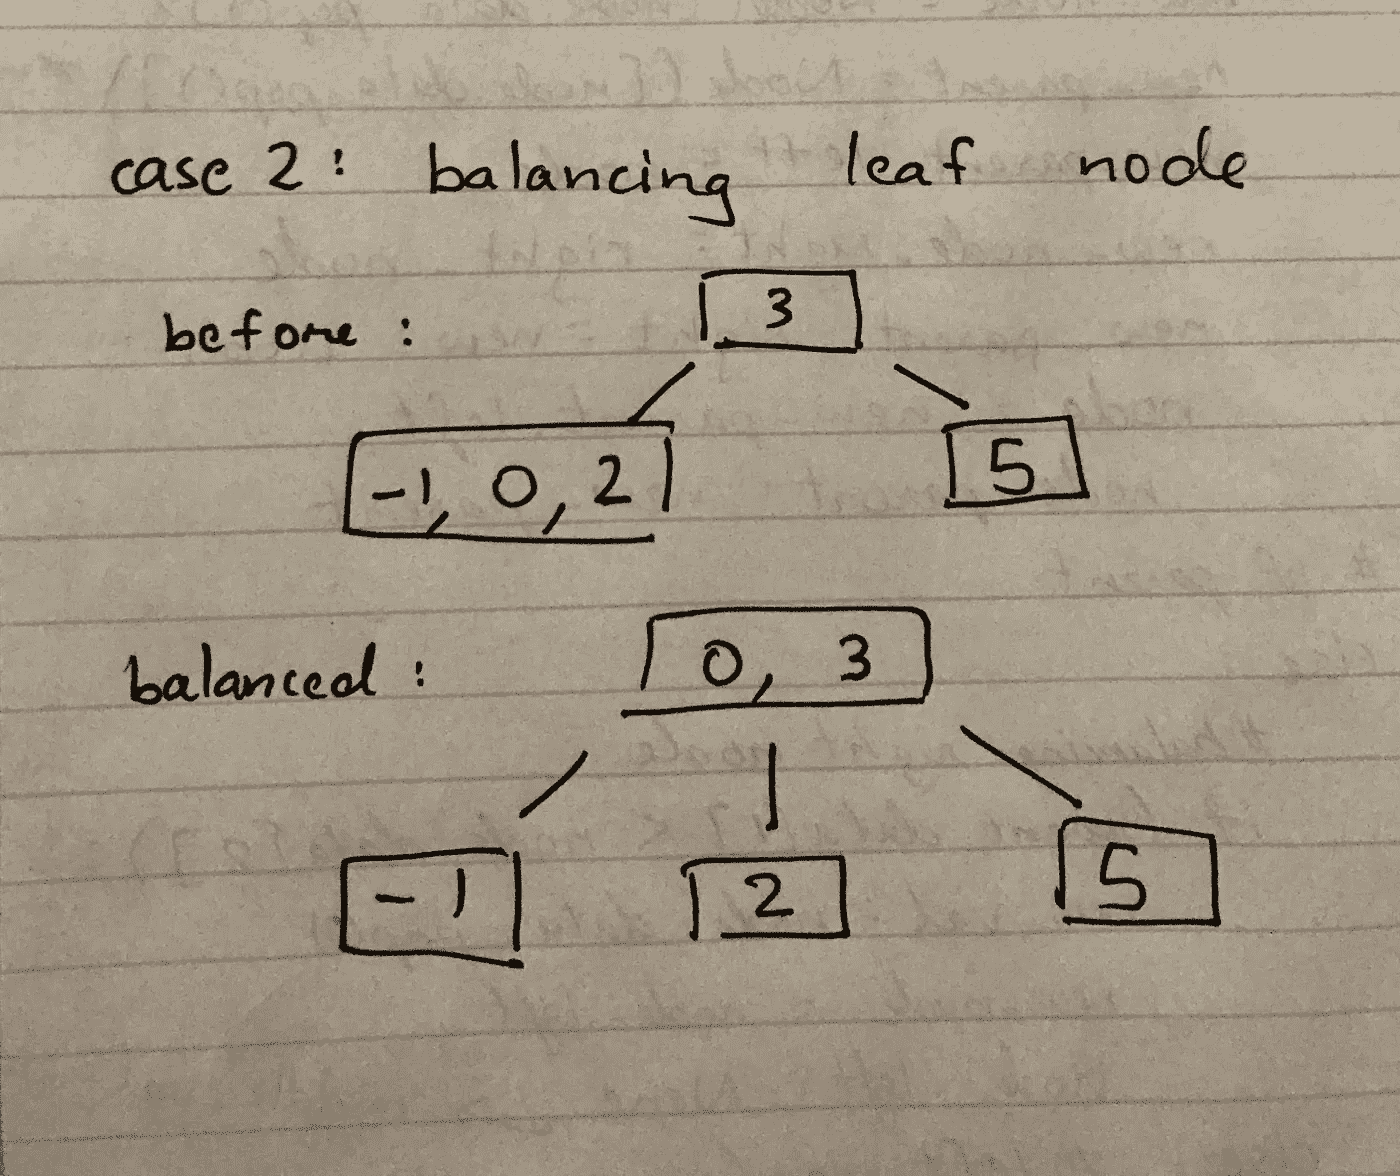 case 2: balancing leaf node
before :
3
-1, 0, 2
5
balanced :
0, 3
-1
2
5